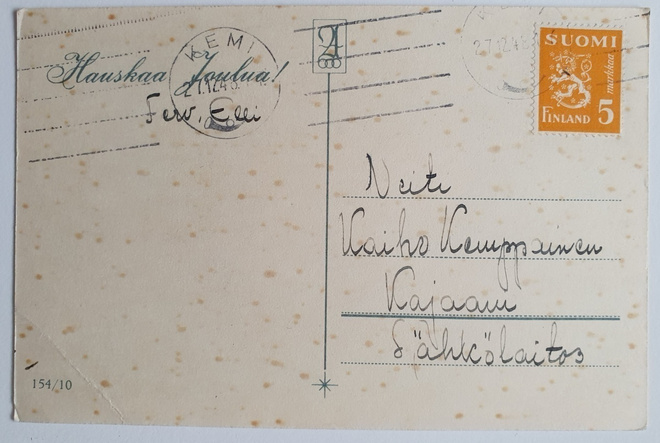 KEMI
27.12.46
SUOMI
5 markkaa
FINLAND
Hauskaa Joulua!
Terv. Elli
Neiti
Kaiho Kemppainen
Kajaani
Sähkölaitos
154/10